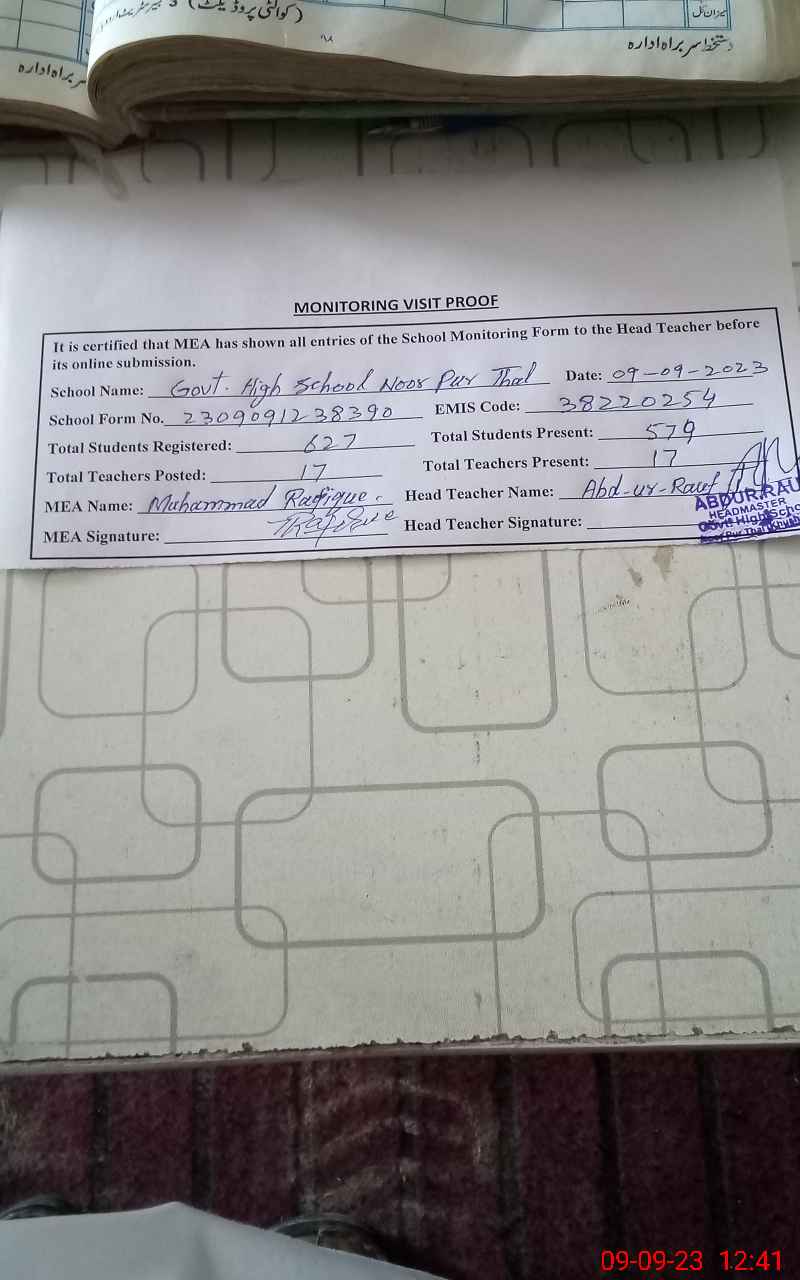 (کوالٹی پروڈیکٹ)
میزان کل
دستخط سربراہ ادارہ
سربراہ ادارہ
MONITORING VISIT PROOF
It is certified that MEA has shown all entries of the School Monitoring Form to the Head Teacher before
its online submission.
School Name: Govt. High School Noor Pur Thal Date: 09-09-2023
School Form No. 2309091238390 EMIS Code: 38220254
Total Students Registered: 627 Total Students Present: 579
Total Teachers Posted: 17 Total Teachers Present: 17
MEA Name: Muhammad Rafique. Head Teacher Name: Abd-ur-Rauf
MEA Signature: Rafique Head Teacher Signature:
ABDUR RAU
HEADMASTER
Govt: High Scho
Noor Pur Thal
09-09-23 12:41